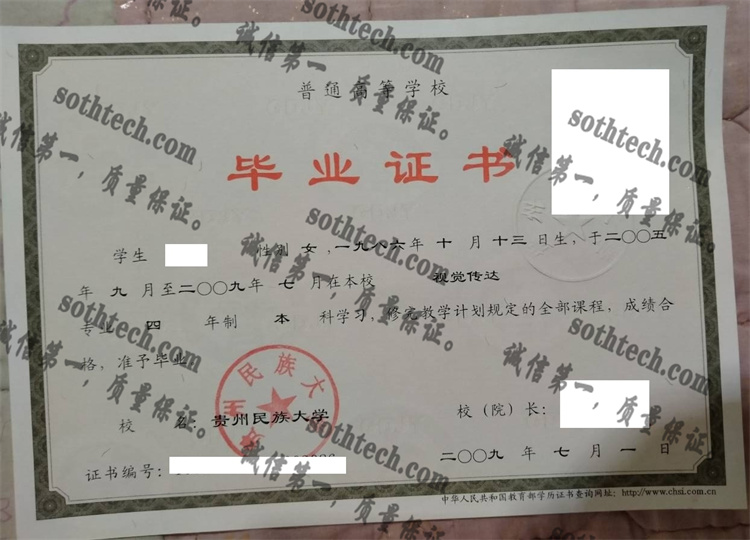 普通高等学校
毕业证书
学生 性别 女，一九八六年 十 月 十三 日生，于二〇〇五
年 九 月至二〇〇九年 七 月在本校 视觉传达
专业 四 年制 本 科学习，修完教学计划规定的全部课程，成绩合
格，准予毕业。
校 名：贵州民族大学
校（院）长：
二〇〇九 年 七 月 一 日
证书编号：
中华人民共和国教育部学历证书查询网址：http://www.chsi.com.cn
sothtech.com
诚信第一，质量保证。
sothtech.com
诚信第一，质量保证。
sothtech.com
诚信第一，质量保证。
sothtech.com
诚信第一，质量保证。
sothtech.com
诚信第一，质量保证。
sothtech.com
诚信第一，质量保证。
sothtech.com
诚信第一，质量保证。
sothtech.com